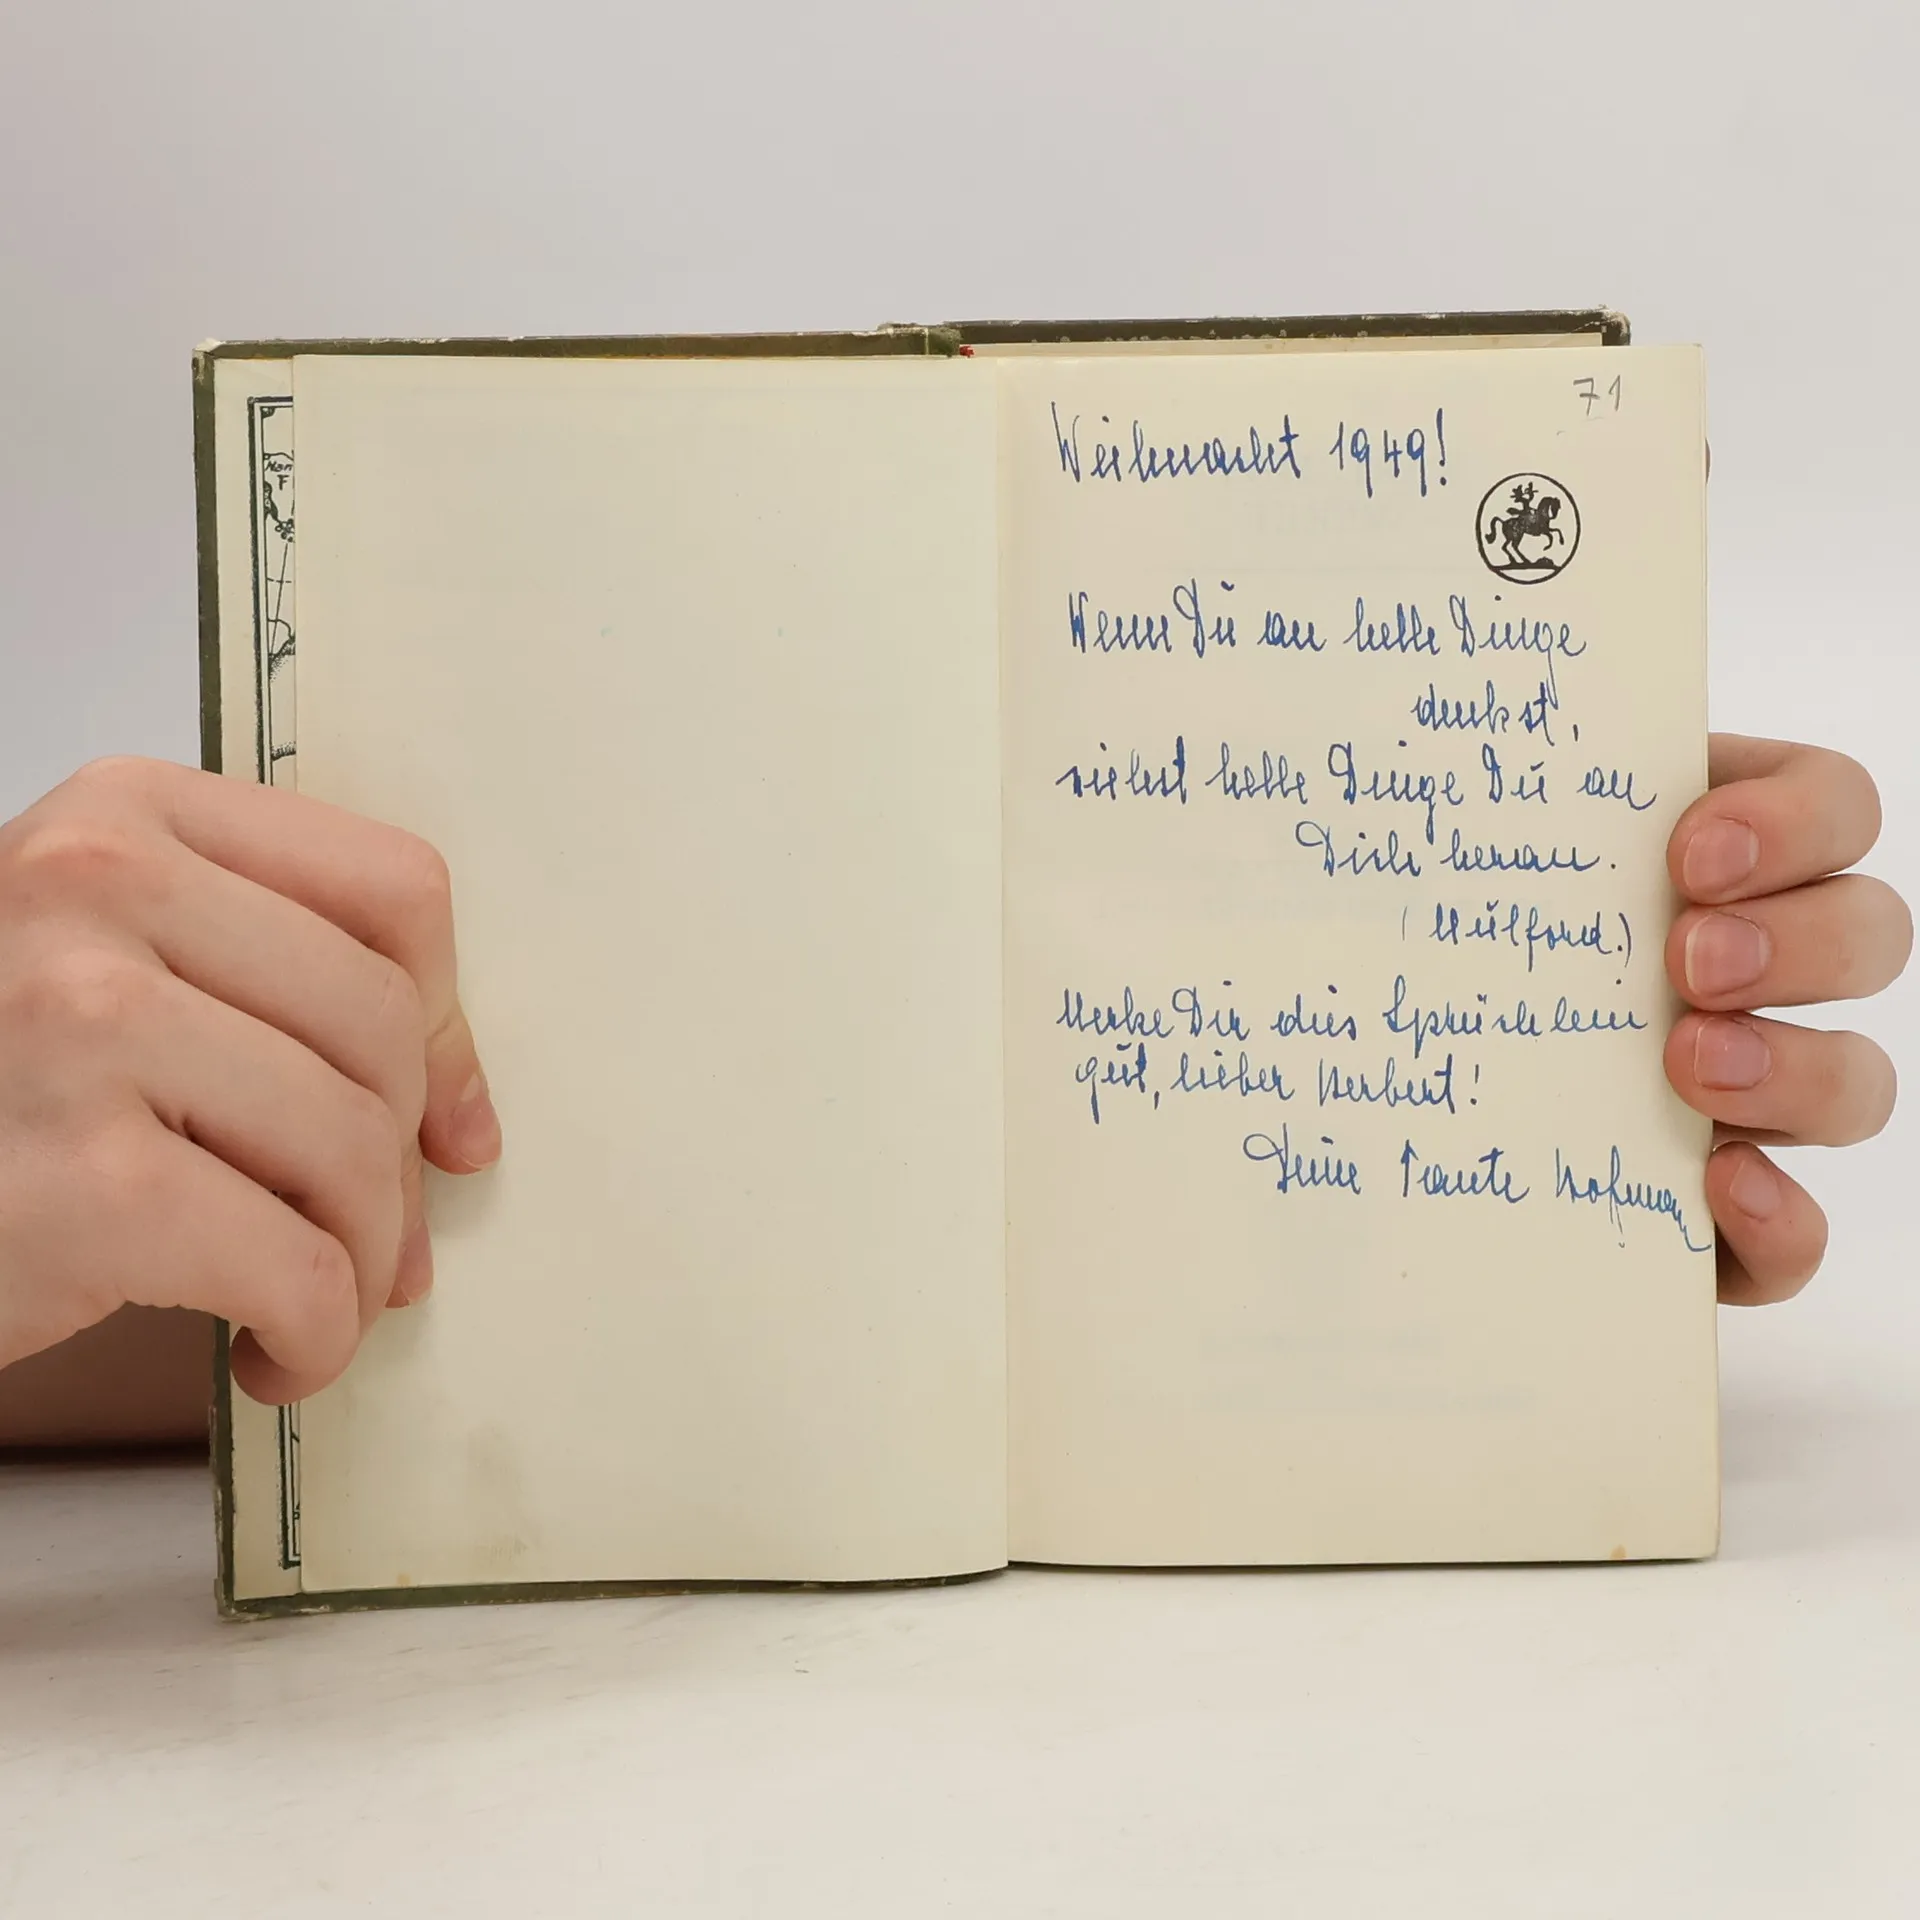 71
Weihnacht 1949!
Wenn Du an helle Dinge
denkst,
ziehst helle Dinge Du an
Dich heran.
(Mulford.)
Merke Dir dies Sprüchlein
gut, lieber Herbert!
Deine Tante Hofmann